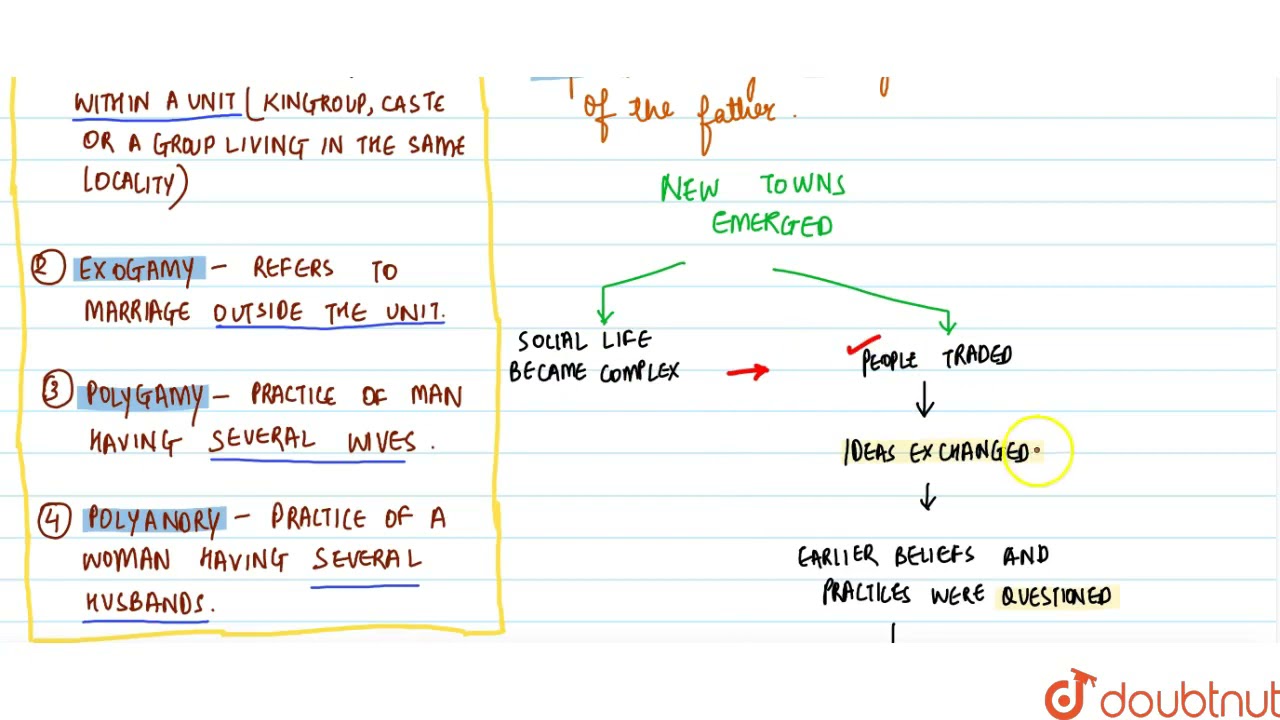 WITHIN A UNIT (KINGROUP, CASTE
OR A GROUP LIVING IN THE SAME
LOCALITY)
② EXOGAMY - REFERS TO
MARRIAGE OUTSIDE THE UNIT.
③ POLYGAMY - PRACTICE OF MAN
HAVING SEVERAL WIVES.
④ POLYANDRY - PRACTICE OF A
WOMAN HAVING SEVERAL
HUSBANDS.
of the father.
NEW TOWNS
EMERGED
SOCIAL LIFE
BECAME COMPLEX
PEOPLE TRADED
IDEAS EXCHANGED
EARLIER BELIEFS AND
PRACTICES WERE QUESTIONED
doubtnut